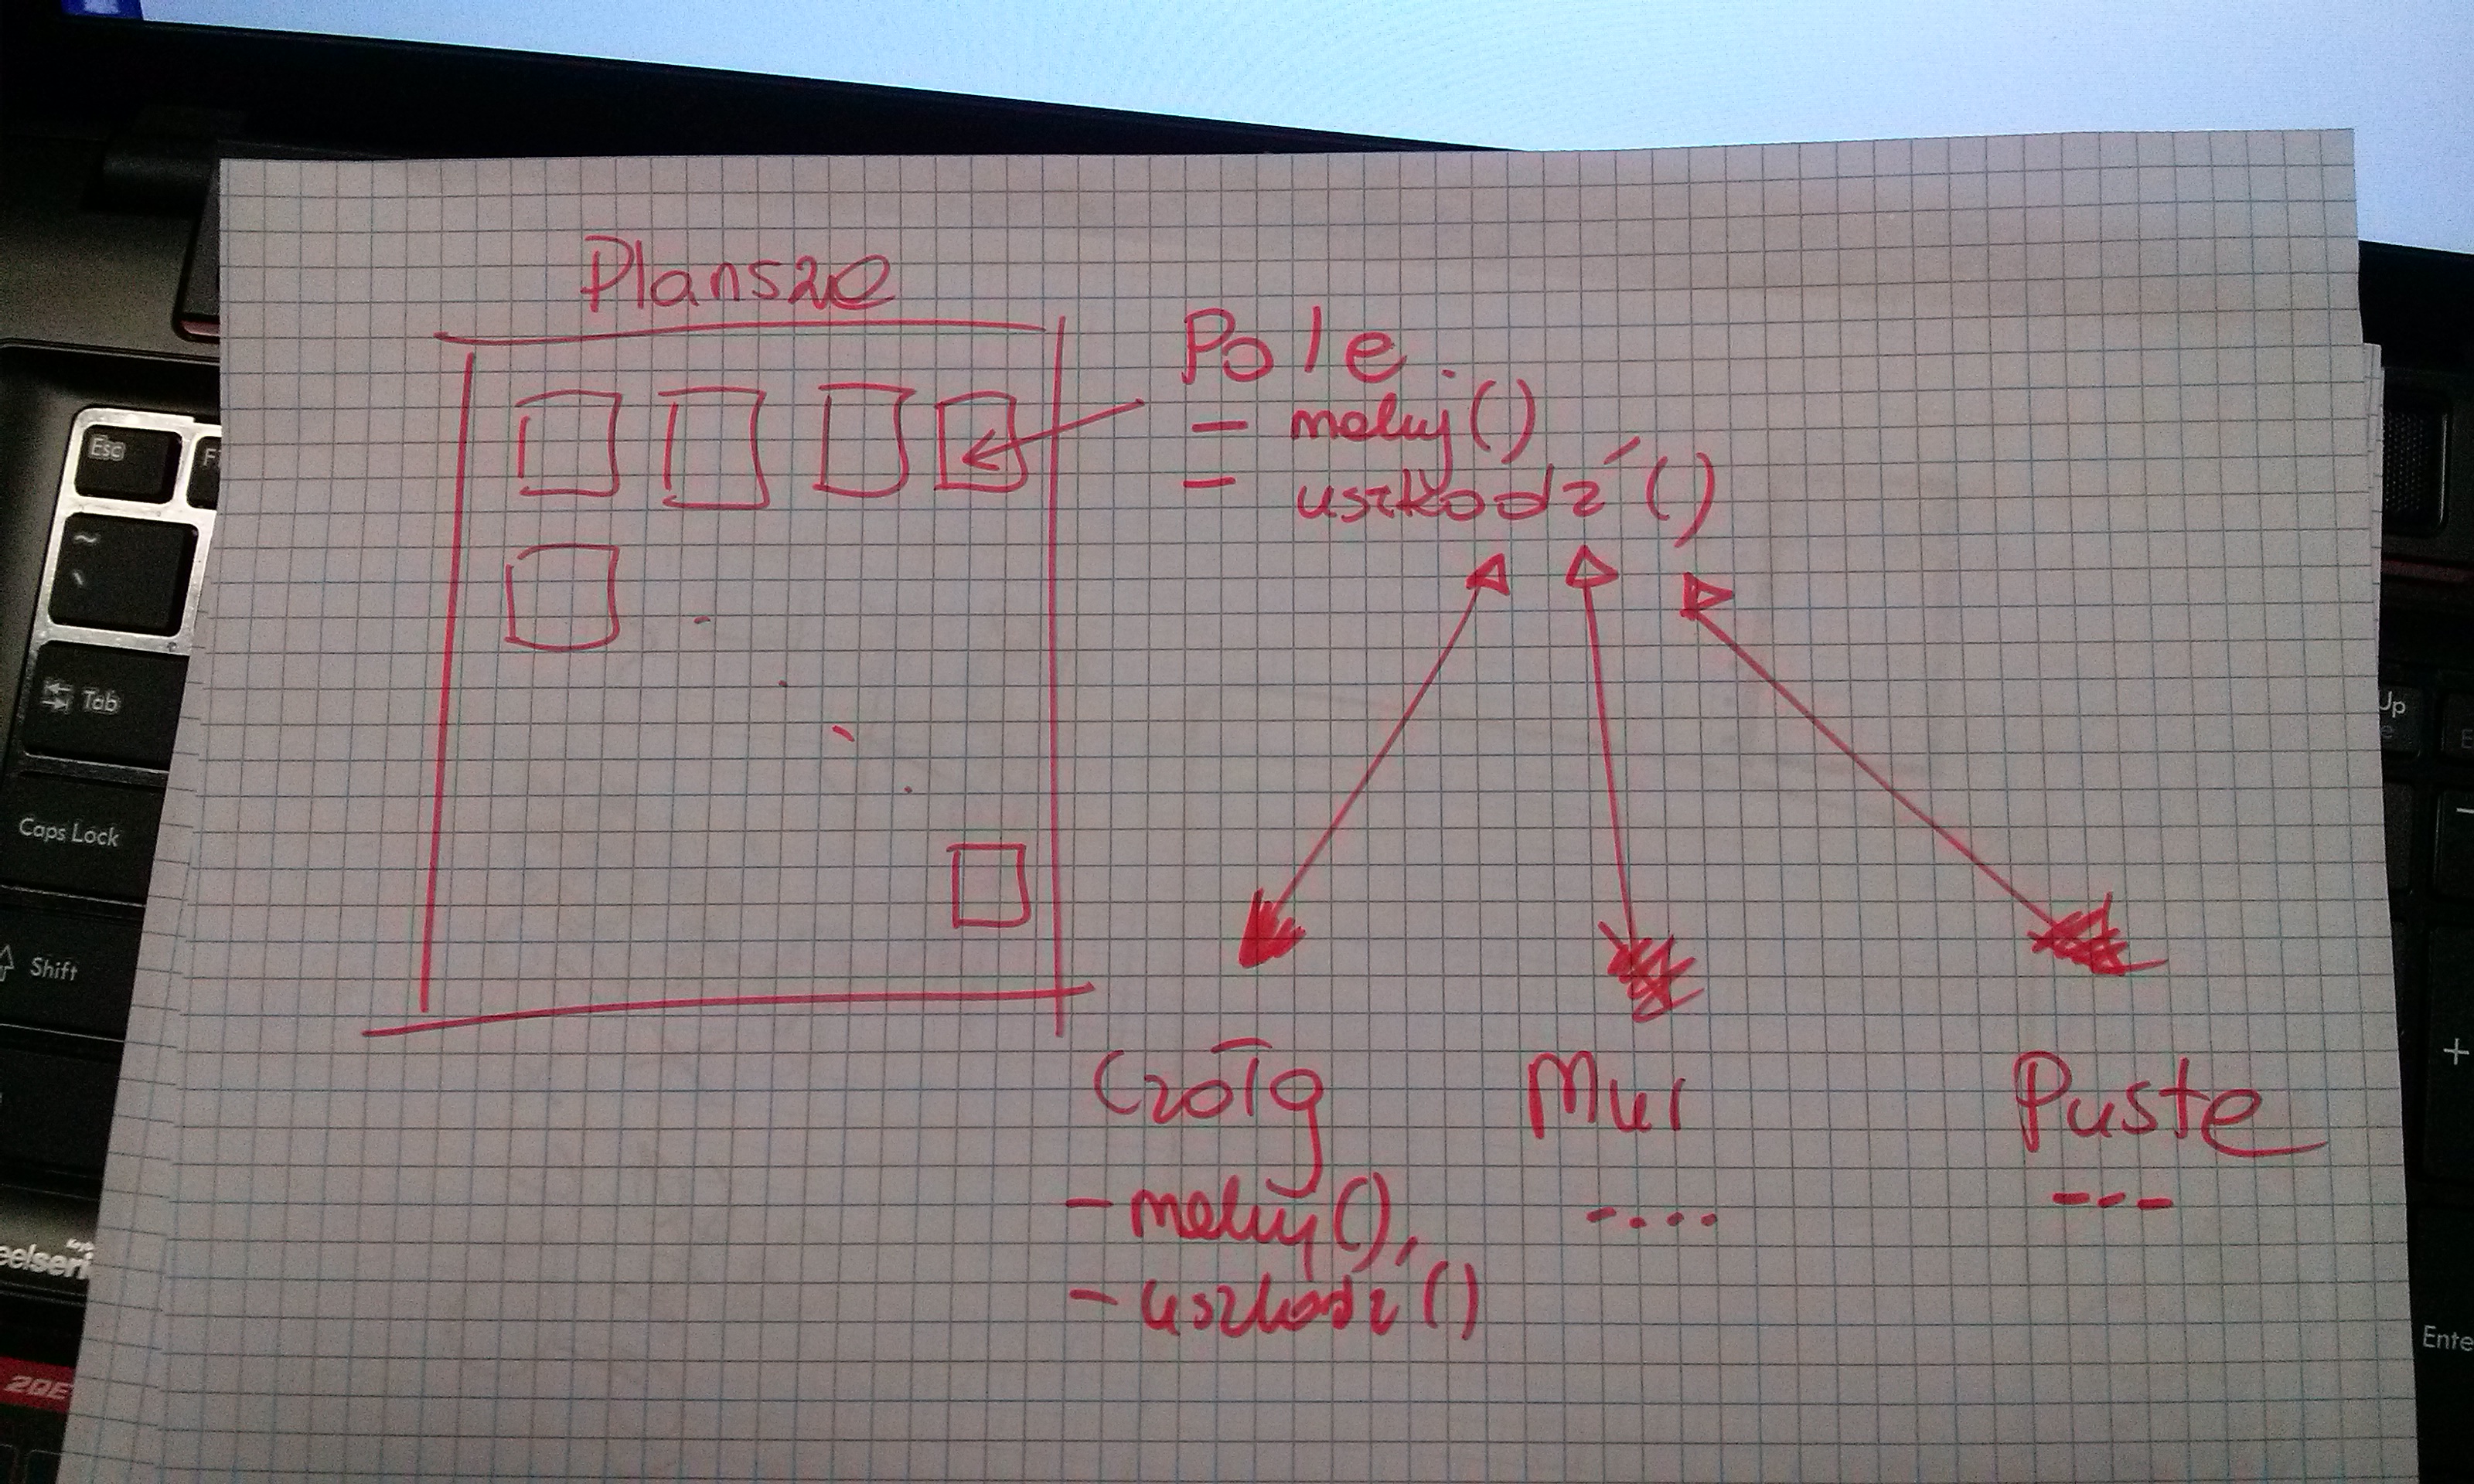 Plansza
Pole
- maluj()
- uszkodź()
Czołg
- maluj(),
- uszkodź()
Mur
....
Puste
---
Esc
~
`
Tab
Caps Lock
Shift
Up
+
Ente
eelseri